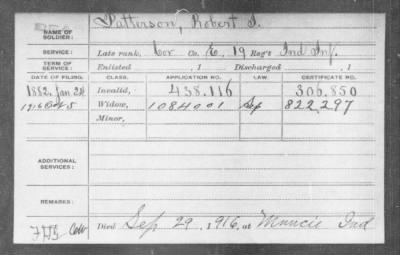 NAME OF SOLDIER: Patterson, Robert I.
SERVICE: Late rank, Cor Co. E, 19 Reg't Ind Inf.
TERM OF SERVICE: Enlisted , 1 Discharged , 1
DATE OF FILING. CLASS. APPLICATION NO. LAW. CERTIFICATE NO.
1882, Jan 24 Invalid, 438,116 306,850
1916 Oct 5 Widow, 1084001 Sep 822,297
Minor,
ADDITIONAL SERVICES:
REMARKS:
Died Sep 29, 1916, at Muncie Ind